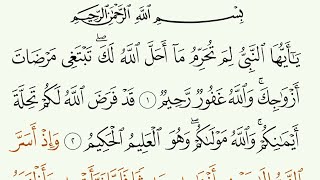 بِسْمِ ٱللَّهِ ٱلرَّحْمَٰنِ ٱلرَّحِيمِ
يَٰٓأَيُّهَا ٱلنَّبِىُّ لِمَ تُحَرِّمُ مَآ أَحَلَّ ٱللَّهُ لَكَ ۖ تَبْتَغِى مَرْضَاتَ
أَزْوَٰجِكَ ۚ وَٱللَّهُ غَفُورٌ رَّحِيمٌ ١ قَدْ فَرَضَ ٱللَّهُ لَكُمْ تَحِلَّةَ
أَيْمَٰنِكُمْ ۚ وَٱللَّهُ مَوْلَىٰكُمْ ۖ وَهُوَ ٱلْعَلِيمُ ٱلْحَكِيمُ ٢ وَإِذْ أَسَرَّ